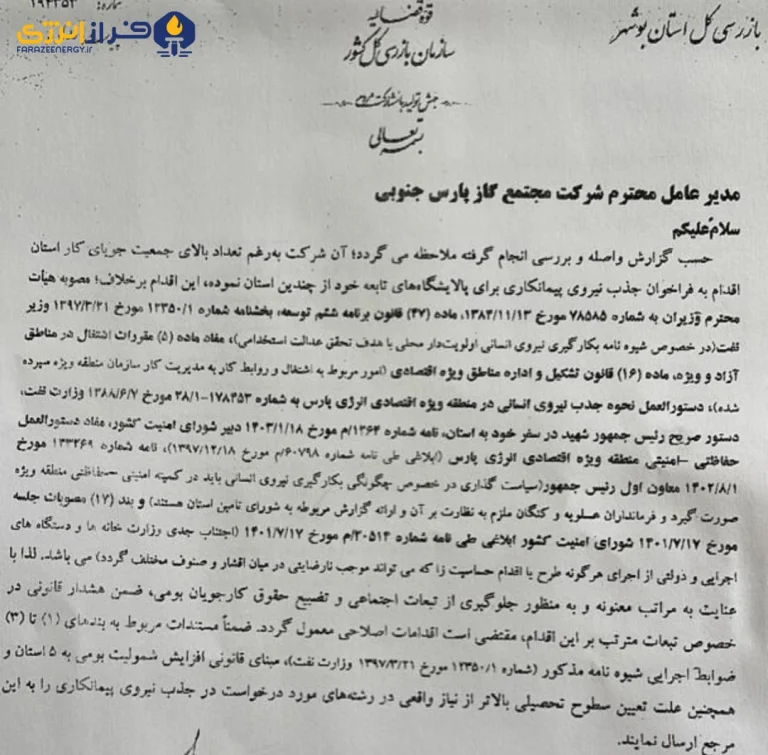 شماره: ۱۹۴۳۵۳
فراز انرژی
FARAZEENERGY.IR
قوه قضائیه
سازمان بازرسی کل کشور
بازرسی کل استان بوشهر
جهش تولید با مشارکت مردم
بسمه تعالی
مدیر عامل محترم شرکت مجتمع گاز پارس جنوبی
سلام علیکم
حسب گزارش واصله و بررسی انجام گرفته ملاحظه می گردد؛ آن شرکت به‌رغم تعداد بالای جمعیت جویای کار استان
اقدام به فراخوان جذب نیروی پیمانکاری برای پالایشگاه‌های تابعه خود از چندین استان نموده، این اقدام برخلاف؛ مصوبه هیأت
محترم وزیران به شماره ۷۸۵۸۵ مورخ ۱۳۸۴/۱۱/۱۳، ماده (۴۷) قانون برنامه ششم توسعه، بخشنامه شماره ۱۲۳۵۰/۱ مورخ ۱۳۹۷/۳/۲۱ وزیر
نفت(در خصوص شیوه نامه بکارگیری نیروی انسانی اولویت‌دار محلی با هدف تحقق عدالت استخدامی)، مفاد ماده (۵) مقررات اشتغال در مناطق
آزاد و ویژه، ماده (۱۶) قانون تشکیل و اداره مناطق ویژه اقتصادی (امور مربوط به اشتغال و روابط کار به مدیریت کار سازمان منطقه ویژه سپرده
شده)، دستورالعمل نحوه جذب نیروی انسانی در منطقه ویژه اقتصادی انرژی پارس به شماره ۱۷۸۴۵۳-۲۸/۱ مورخ ۱۳۸۸/۶/۷ وزارت نفت،
دستور صریح رئیس جمهور شهید در سفر خود به استان، نامه شماره ۱۳۶۴/م مورخ ۱۴۰۳/۱/۱۸ دبیر شورای امنیت کشور، مفاد دستورالعمل
حفاظتی -امنیتی منطقه ویژه اقتصادی انرژی پارس (ابلاغی طی نامه شماره ۶۰۷۹۸/م مورخ ۱۳۹۷/۱۲/۱۸)، نامه شماره ۱۳۳۲۶۹ مورخ
۱۴۰۲/۸/۱ معاون اول رئیس جمهور(سیاست گذاری در خصوص چگونگی بکارگیری نیروی انسانی باید در کمیته امنیتی -حفاظتی منطقه ویژه
صورت گیرد و فرمانداران عسلویه و کنگان ملزم به نظارت بر آن و ارائه گزارش مربوطه به شورای تامین استان هستند) و بند (۱۷) مصوبات جلسه
مورخ ۱۴۰۱/۷/۱۷ شورای امنیت کشور ابلاغی طی نامه شماره ۲۰۵۱۴/م مورخ ۱۴۰۱/۷/۱۷ (اجتناب جدی وزارت خانه ها و دستگاه های
اجرایی و دولتی از اجرای هرگونه طرح یا اقدام حساسیت زا که می تواند موجب نارضایتی در میان اقشار و صنوف مختلف گردد) می باشد. لذا با
عنایت به مراتب معنونه و به منظور جلوگیری از تبعات اجتماعی و تضییع حقوق کارجویان بومی، ضمن هشدار قانونی در
خصوص تبعات مترتب بر این اقدام، مقتضی است اقدامات اصلاحی معمول گردد. ضمناً مستندات مربوط به بندهای (۱) تا (۳)
ضوابط اجرایی شیوه نامه مذکور (شماره ۱۲۳۵۰/۱ مورخ ۱۳۹۷/۳/۲۱ وزارت نفت)، مبنای قانونی افزایش شمولیت بومی به ۵ استان و
همچنین علت تعیین سطوح تحصیلی بالاتر از نیاز واقعی در رشته‌های مورد درخواست در جذب نیروی پیمانکاری را به این
مرجع ارسال نمایند.